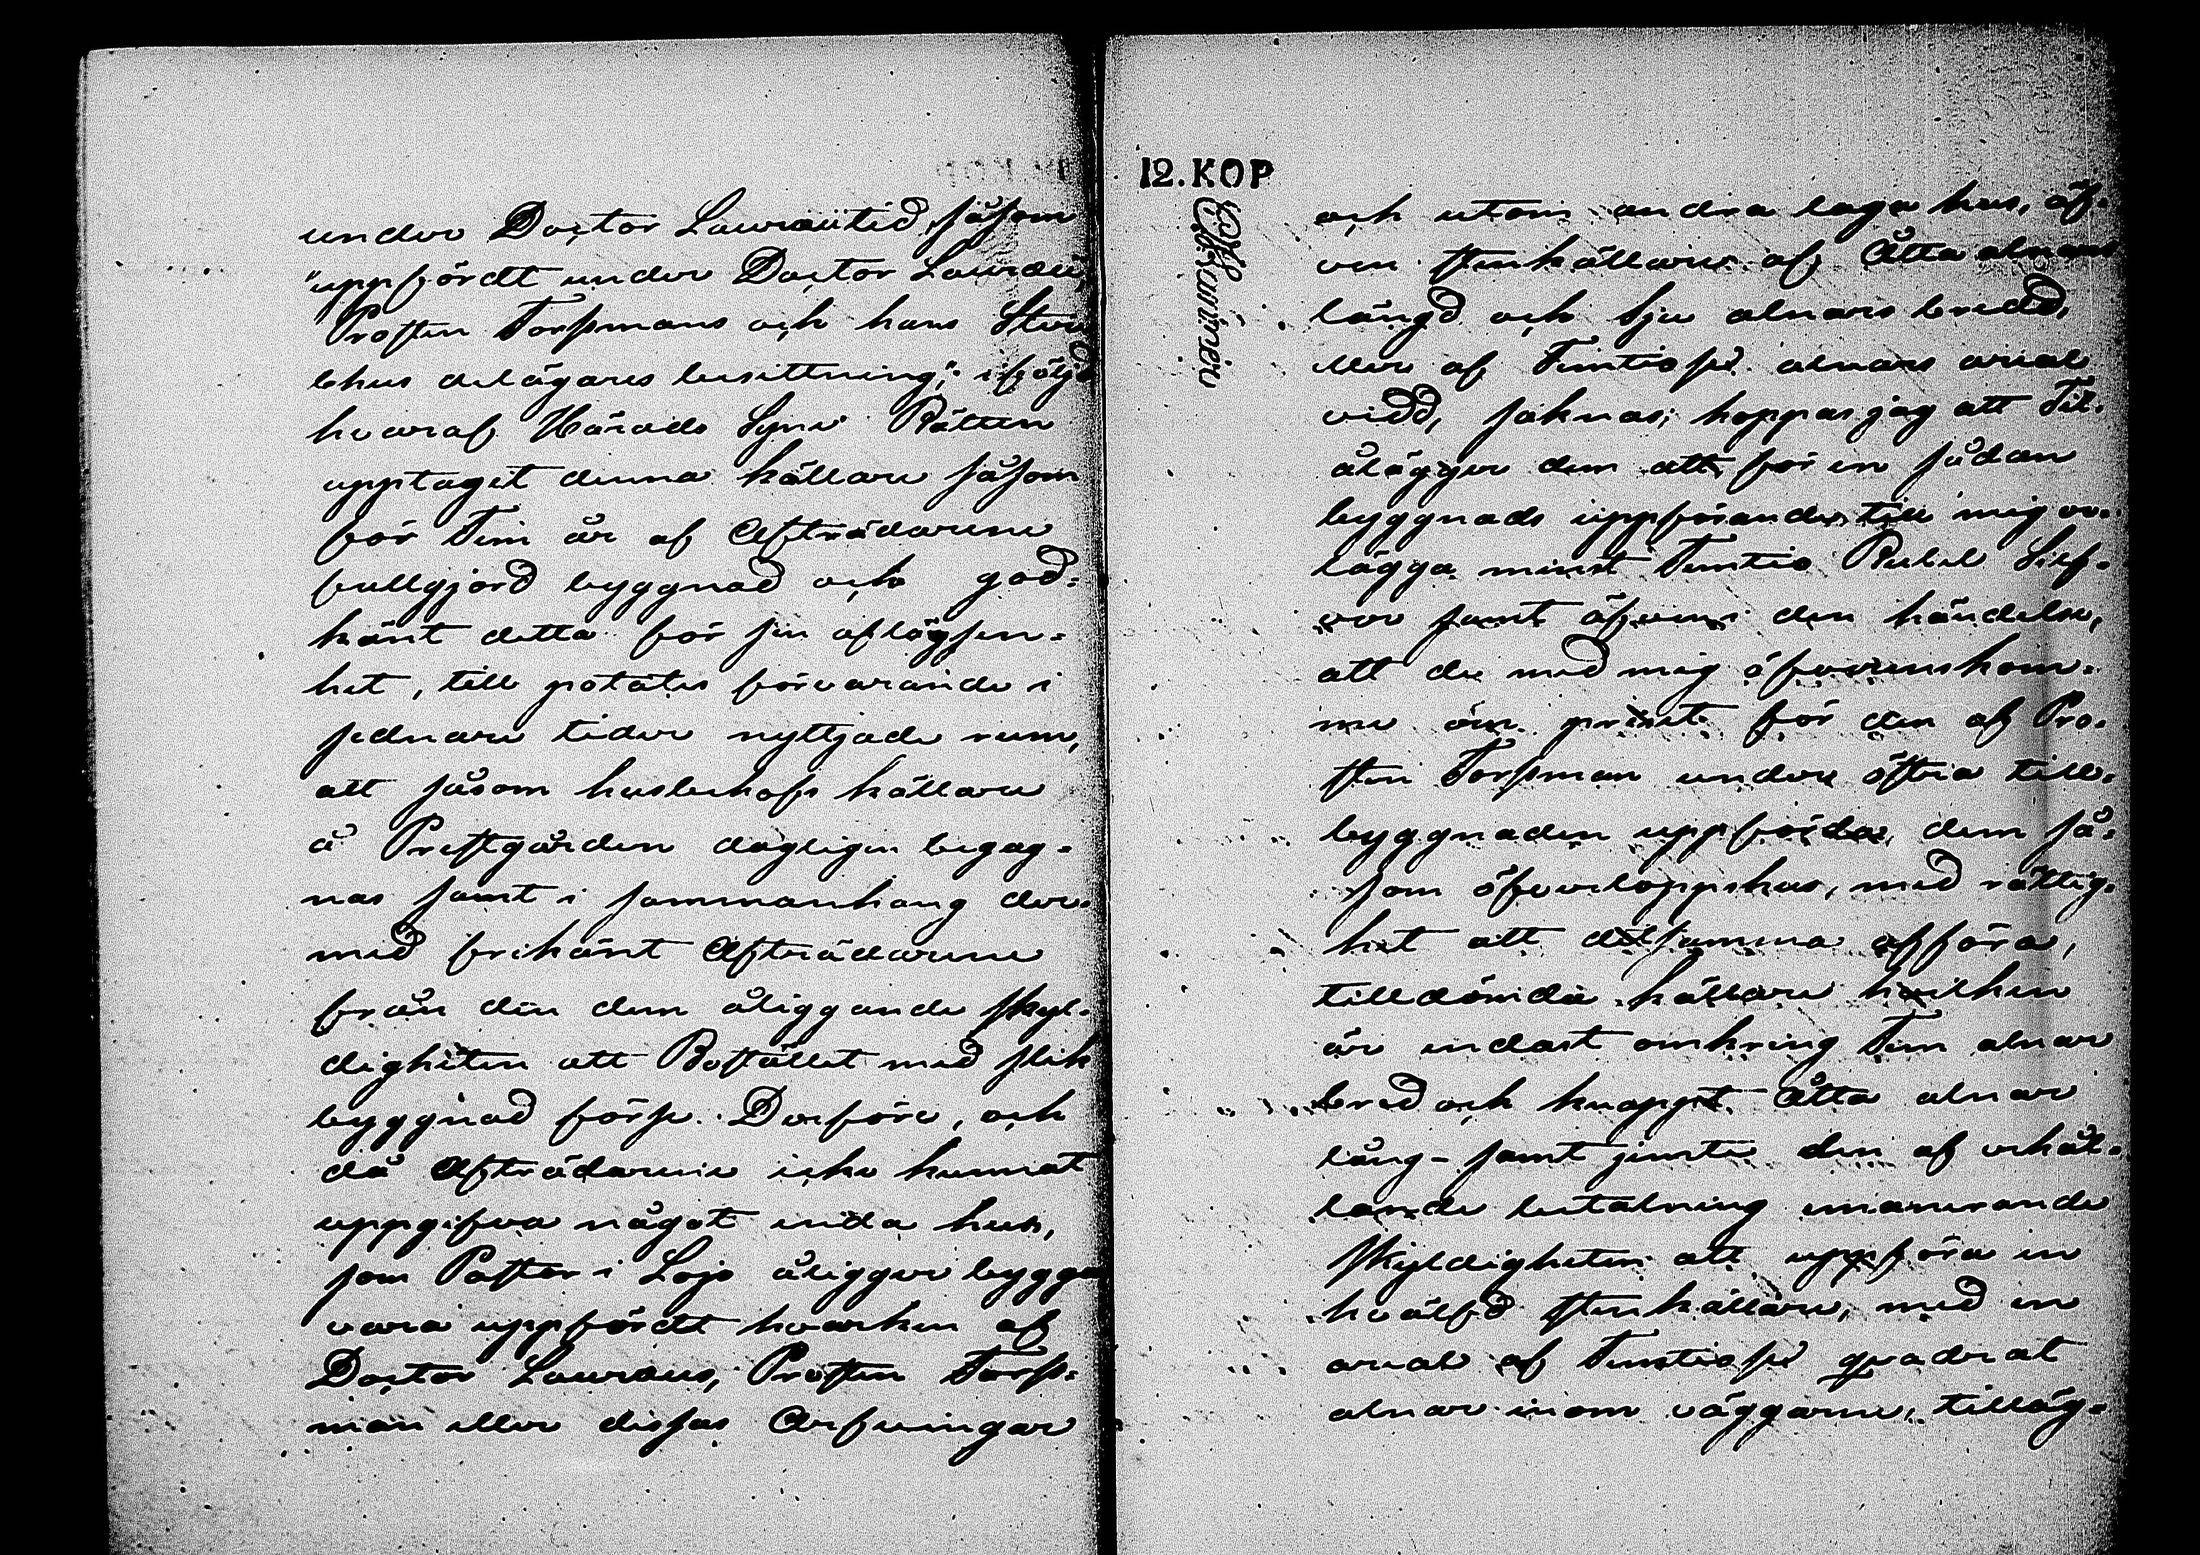 under Doctor Lauræi tid, såsom
"uppfördt under Doctor Lauræi,
Prosten Forsmans och hans Sterb
bhus delägares besittning"; ifölje
hvaraf Härads Syne Rätten
upptaget denna källare såsom
för Fem år af Afträdarene
fullgjord byggnad och god-
känt detta för sin aflägsen-
het, till potates förvarande i
sednare tider nyttjade rum,
att såsom husbehofs källare
å Prestgården dageligen begag-
nas samt i sammanhang der-
med frikänt Afträdarene
från den dem åliggande skyl-
digheten att Bostället med slik
byggnad förse. Derföre, och
då Afträdarene icke kunnat
uppgifva något enda hus,
som Pastor i Lojo åligger bygga
vara uppfördt hvarken af
Doctor Lauræus, Prosten Fors-
man eller dessas Arfvingar
12. KOP
och utom andra laga hus, äf-
ven stenkällare af Åtta alnars
längd och Sju alnars bredd,
eller af Femtiosex alnars areal
vidd, saknas; hoppas jag att
ålägger dem att för en sådan
byggnads uppförande till mig er-
lägga minst Femtio Rubel Silf-
ver samt äfven i den händelse,
att de med mig öfverenskom-
me om priset för den af Pro-
sten Forsman under östra till-
byggnaden uppförda, dem så-
som öfverloppshus, med rättig-
het att detsamma afföra,
tilldömda källare hvilken
är endast omkring Fem alnar
bred och knappt Åtta alnar
lång - samt jemte den af erhål-
lande betalning
Skyldigheten att uppföra en
hvälfd stenkällare, med en
areal af Femtiosex quadrat
alnar inom väggarne, tilläg-